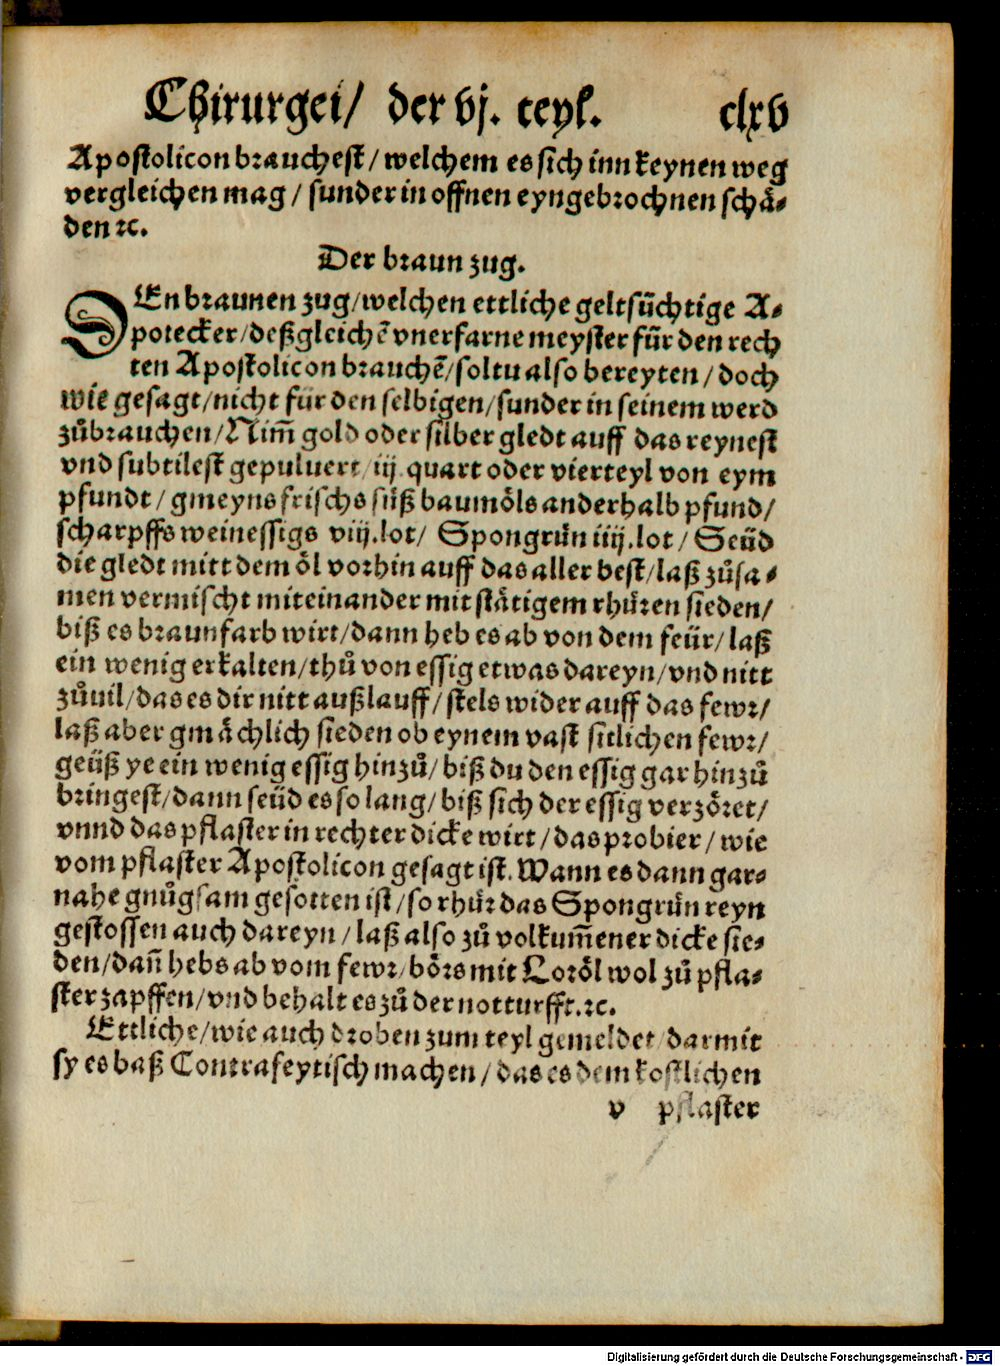 Chirurgei/ der vj. teyl. clxv
Apostolicon brauchest/ welchem es sich inn keynen weg
vergleichen mag/ sunder in offnen eyngebrochnen schä-
den ꝛc.
Der braun zug.
DEn braunen zug/welchen ettliche geltsüchtige A-
potecker/deßgleichē vnerfarne meyster für den rech
ten Apostolicon brauchē/soltu also bereyten/doch
wie gesagt/nicht für den selbigen/sunder in seinem werd
zůbrauchen/Nim̃ gold oder silber gledt auff das reynest
vnd subtilest gepuluert/iij quart oder vierteyl von eym
pfundt/gmeyns frischs süß baumöls anderhalb pfund/
scharpffs weinessigs viij.lot/ Spongrün iiij.lot/ Seüd
die gledt mitt dem öl vorhin auff das aller best/laß zůsa-
men vermischt miteinander mit stätigem rhüren sieden/
biß es braunfarb wirt/dann heb es ab von dem feür/laß
ein wenig erkalten/thů von essig etwas dareyn/vnd nitt
zůuil/das es dir nitt außlauff/stels wider auff das fewr/
laß aber gmächlich sieden ob eynem vast sitlichen fewr/
geüß ye ein wenig essig hinzů/biß du den essig gar hinzů
bringest/dann seüd es so lang/biß sich der essig verzöret/
vnnd das pflaster in rechter dicke wirt/das probier/wie
vom pflaster Apostolicon gesagt ist. Wann es dann gar-
nahe gnůgsam gesotten ist/so rhür das Spongrün reyn
gestossen auch dareyn/laß also zů volkum̃ener dicke sie-
den/dañ hebs ab vom fewr/börs mit Loröl wol zů pfla-
ster zapffen/vnd behalt es zů der notturfft.ꝛc.
Ettliche/wie auch droben zum teyl gemeldet/darmit
sy es baß Contrafeytisch machen/das es dem kostlichen
v pflaster
Digitalisierung gefördert durch die Deutsche Forschungsgemeinschaft - DFG